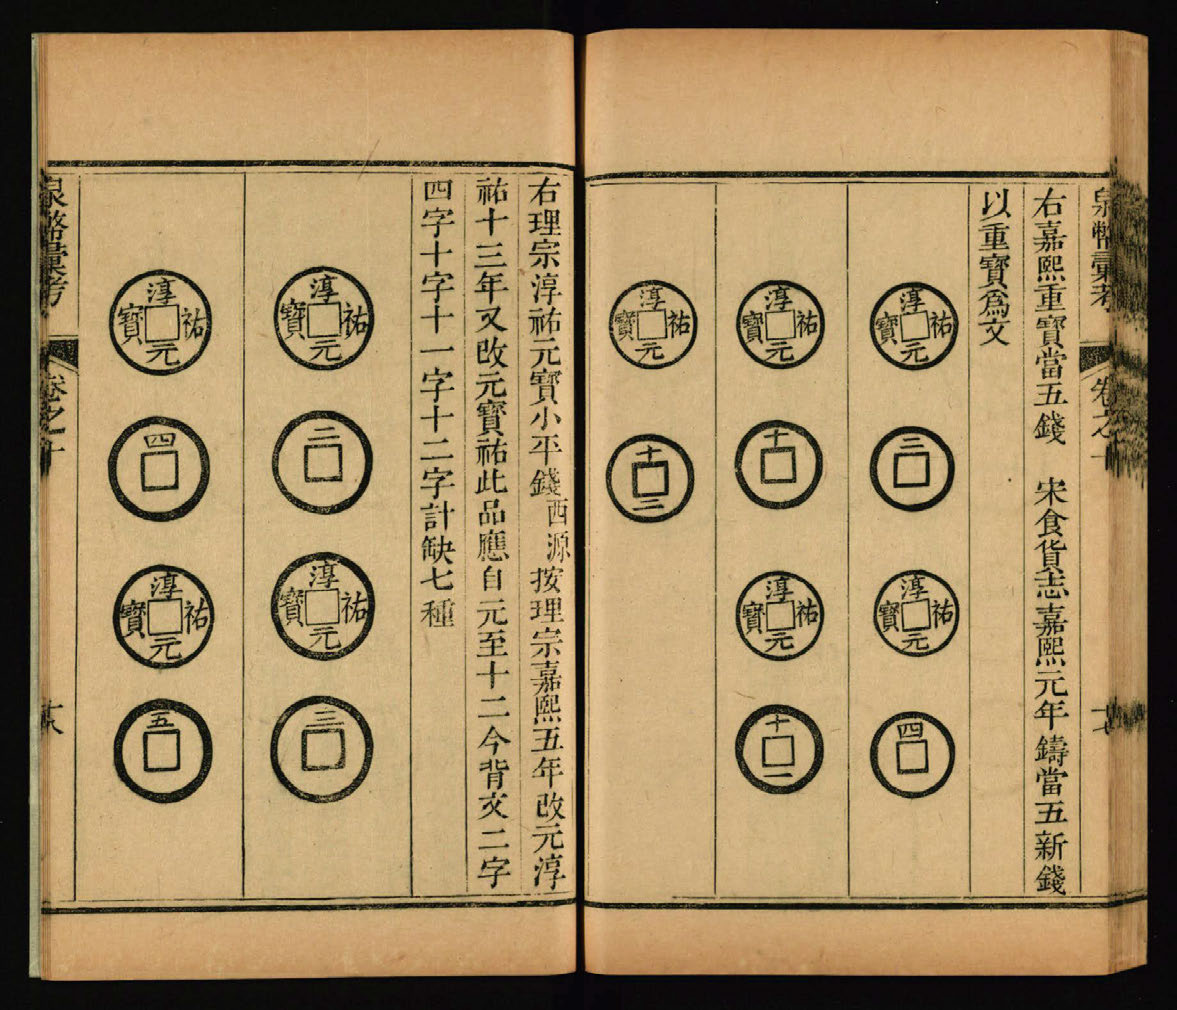 泉幣彙考 卷之十 十七
右嘉熙重寶當五錢 宋食貨志嘉熙元年鑄當五新錢
以重寶爲文
淳祐元寶
三
淳祐元寶
四
淳祐元寶
十
淳祐元寶
十一
淳祐元寶
十二
右理宗淳祐元寶小平錢西源按理宗嘉熙五年改元淳
祐十三年又改元寶祐此品應自元至十二今背文二字
四字十字十一字十二字計缺七種
淳祐元寶
二
淳祐元寶
三
淳祐元寶
四
淳祐元寶
五
泉幣彙考 卷之十 十八